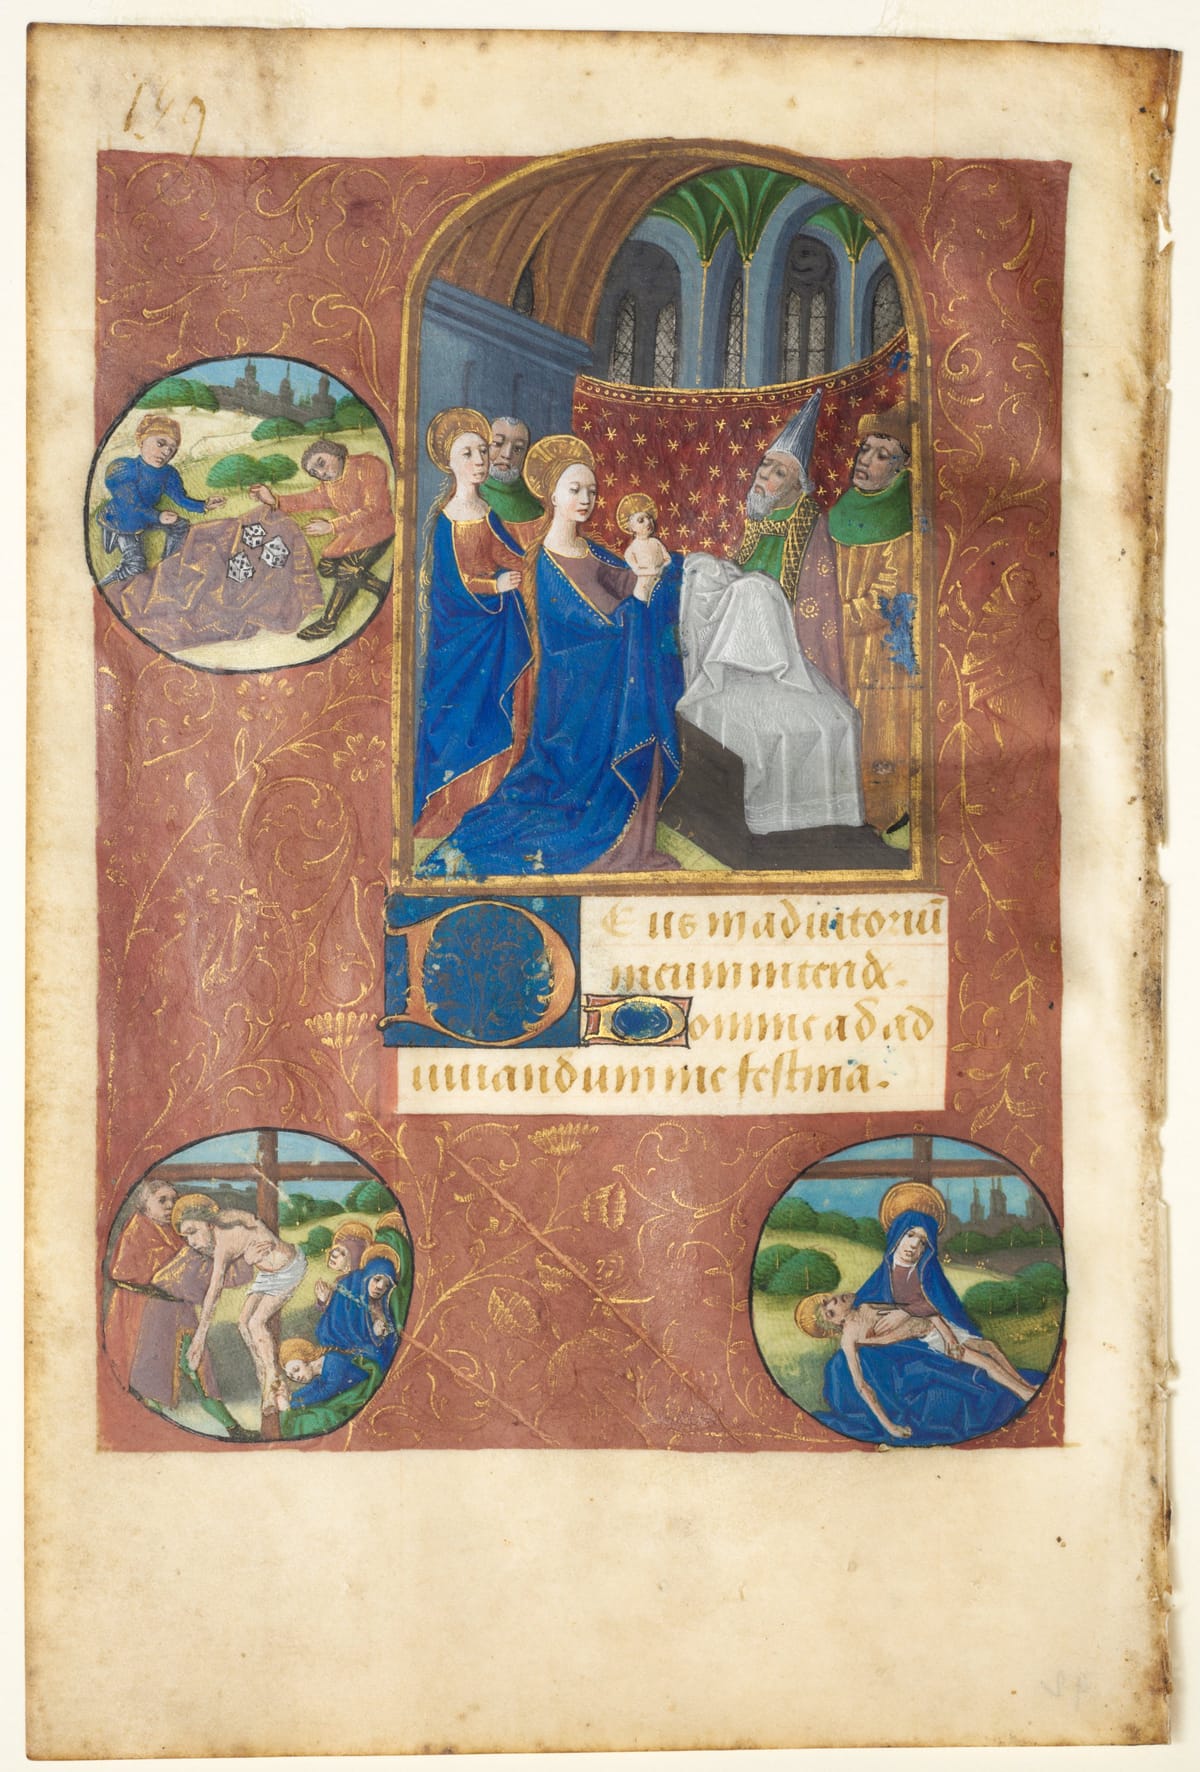 149
DEus in adiutoriū
meum intende.
Domine ad ad
iuuandum me festina.